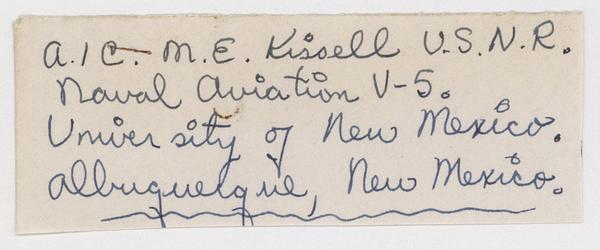 A/C. M.E. Kissell U.S.N.R.
Naval Aviation V-5.
University of New Mexico.
Albuquerque, New Mexico.